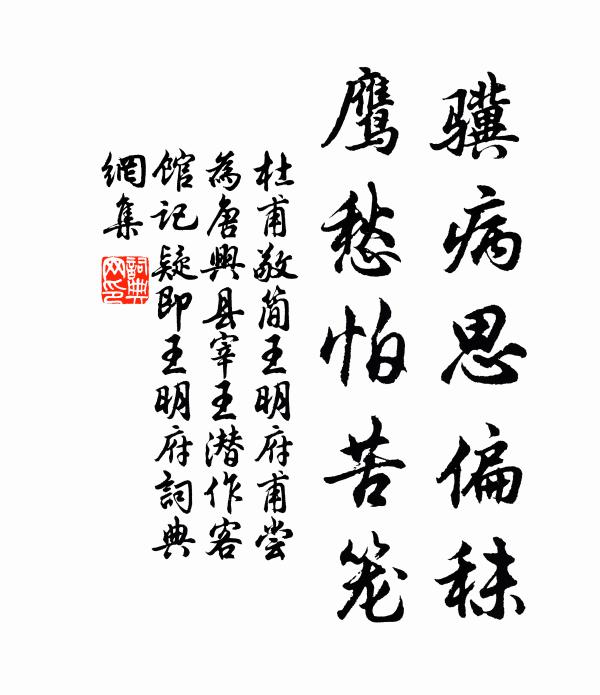 骥病思偏秣
鹰愁怕苦笼
杜甫敬简王明府甫尝
為唐興县宰王潜作客
馆记疑即王明府詞典
網集
詞典網印